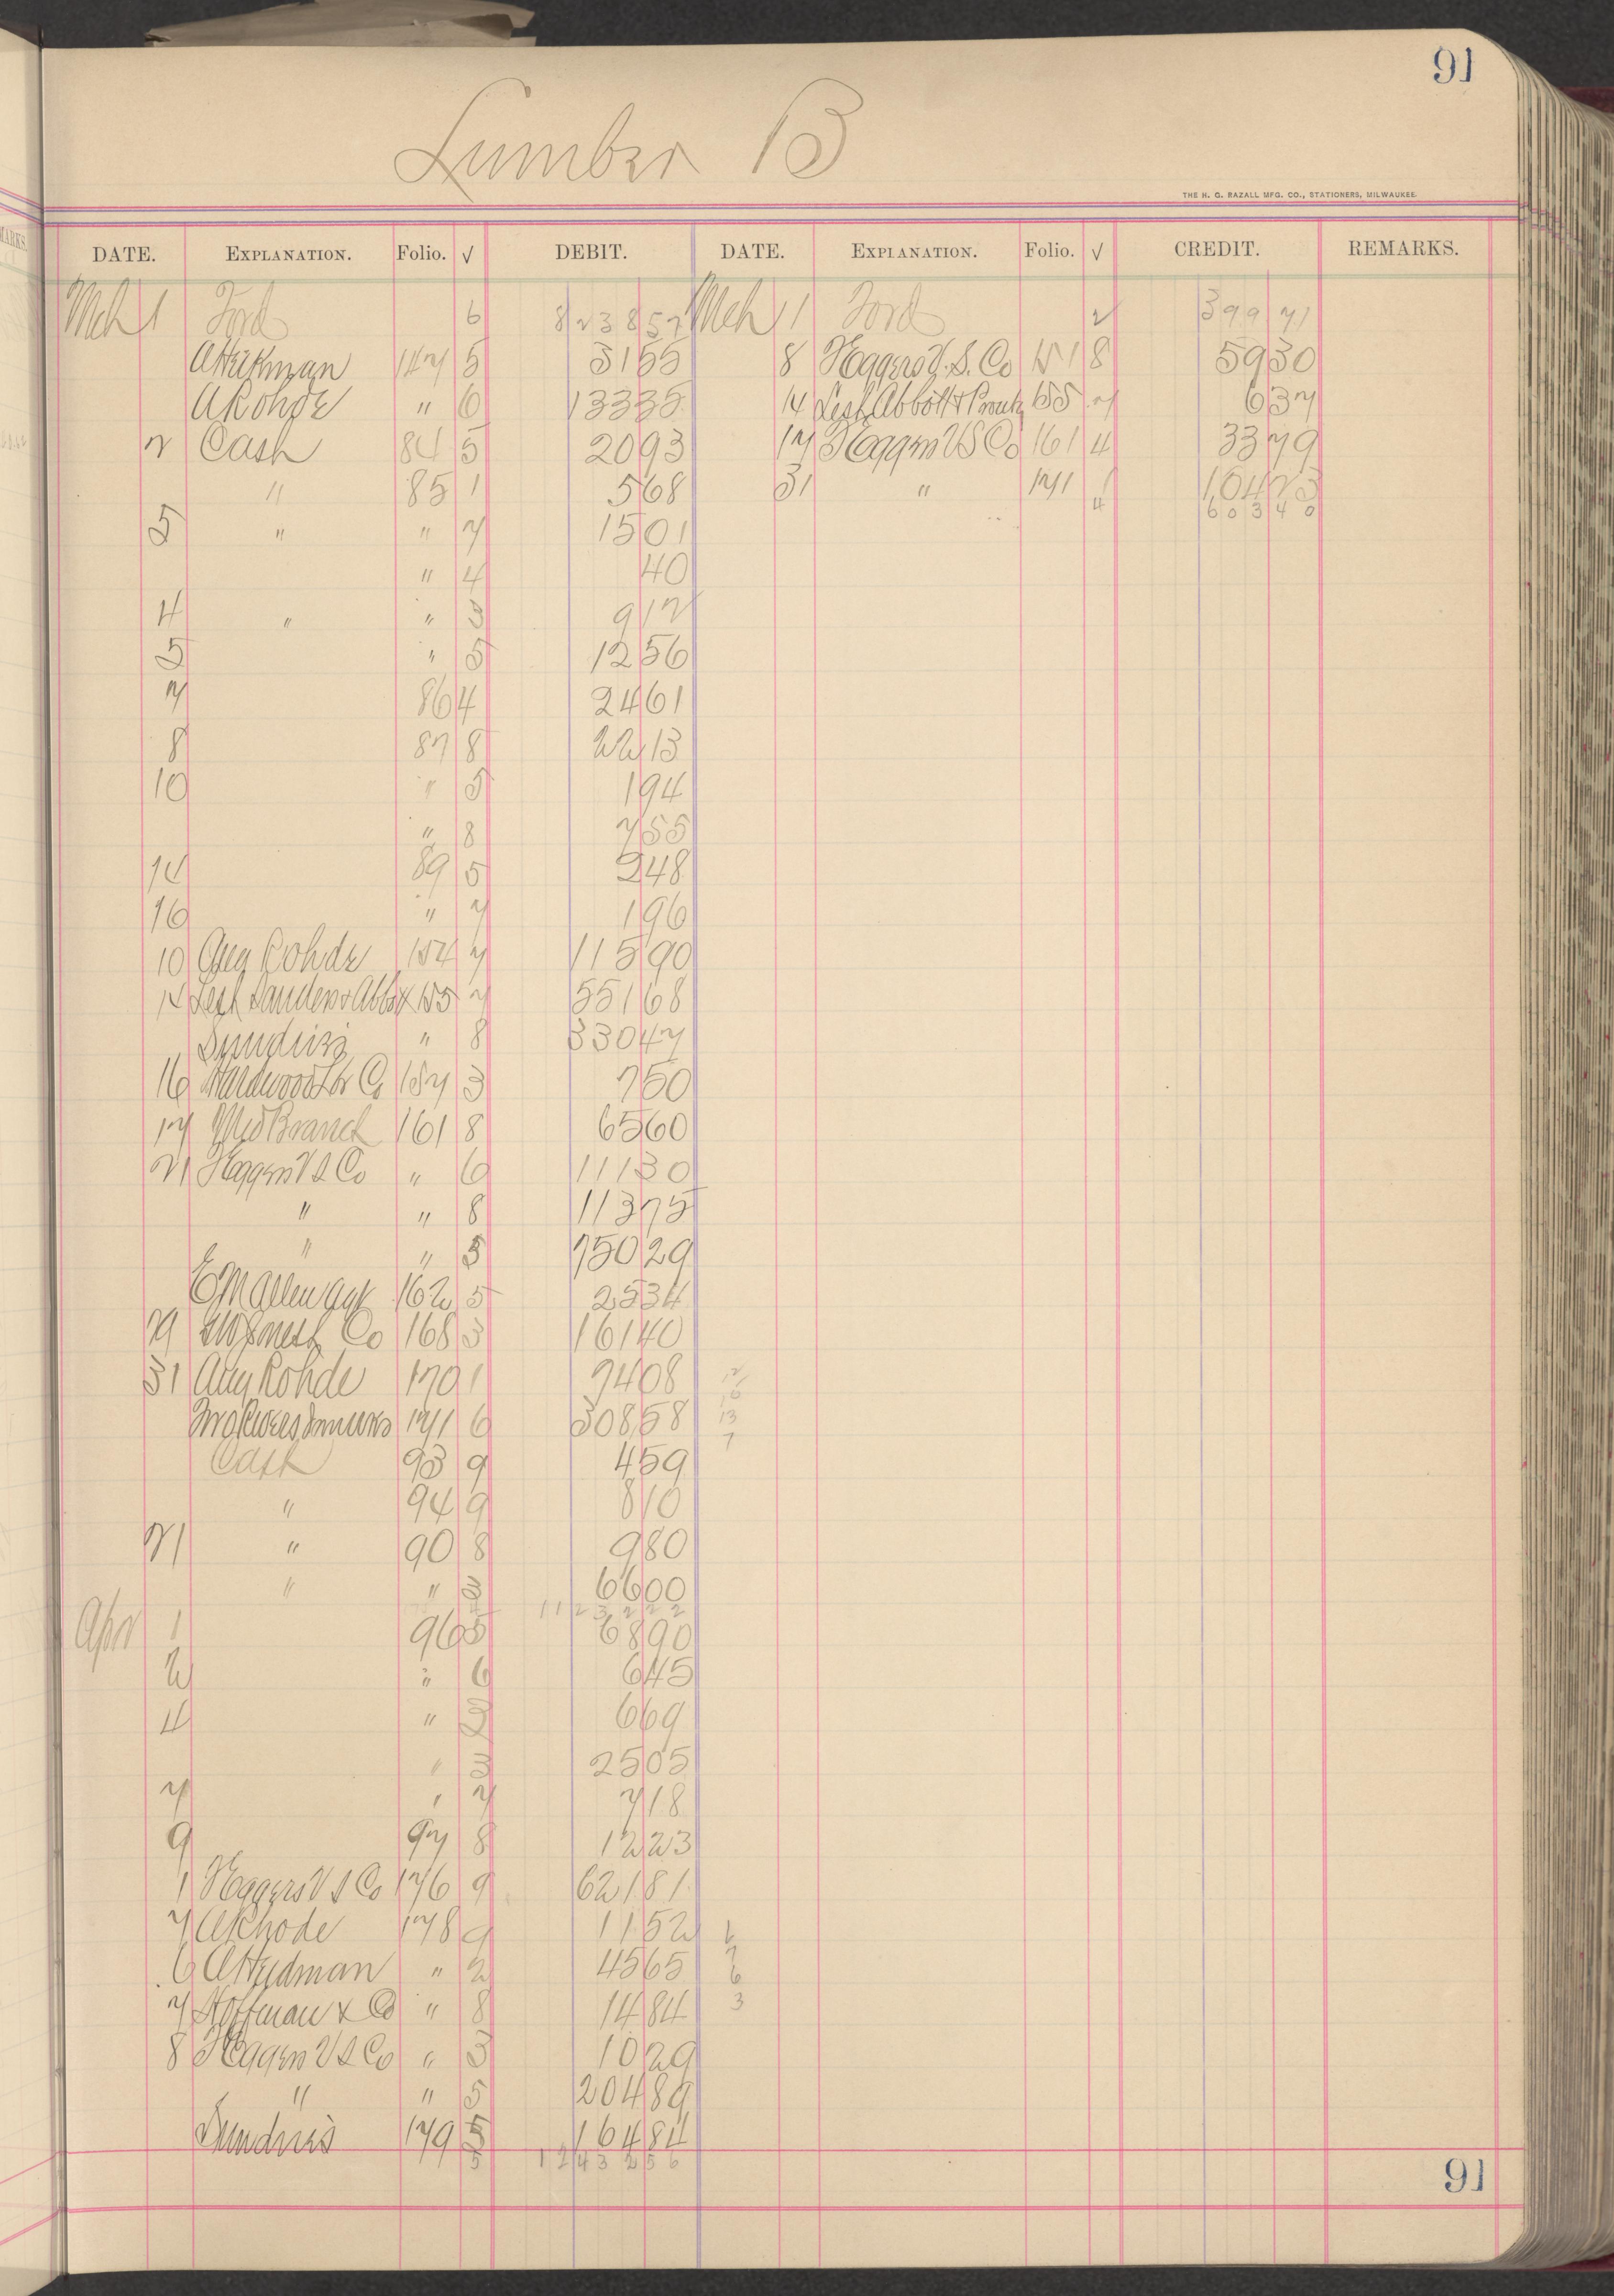 91
Lumber B
THE H. G. RAZALL MFG. CO., STATIONERS, MILWAUKEE.
DATE. EXPLANATION. Folio. √ DEBIT. DATE. EXPLANATION. Folio. √ CREDIT. REMARKS.
Mch 1 Ford 6 823857 Mch 1 Ford 2 39971
147 5 3155 8 Heggers V.S. Co 151 8 5930
A Rohde " 6 13335 14 Lesh, Abbott & Prouty 155 7 637
2 Cash 84 5 2093 17 Heggers V S Co 161 4 3379
" 85 1 568 31 " 171 1 10423
4 60340
5 " " 7 1501
" 4 40
4 " " 3 912
5 " 5 1256
7 86 4 2461
8 87 8 2213
10 " 5 194
" 8 755
14 89 5 248
16 " 7 196
10 Aug Rohde 154 7 11590
14 Lesh Sanders & Abbott 155 7 55168
Sundries " 8 33047
16 Hardwood Lbr Co 157 3 750
17 Med Branch 161 8 6560
21 Heggers V S Co " 6 11130
" " 8 11375
" " 5 75029
E M Allen Agt 162 5 2534
29 Co 168 3 16140
31 Aug Rohde 170 1 7408
171 6 30858 13
7
Cash 93 9 459
" 94 9 810
21 " 90 8 980
" " 3 6600
1123222
Apr 1 96 5 6890
2 " 6 645
4 " 2 669
" 3 2505
7 " 7 718
9 97 8 1223
1 Heggers V S Co 176 9 62181
7 A Rhode 178 9 1152
6 A Heidman " 2 4565 6
7 Hoffman & Co " 8 1484 3
8 Heggers V S Co " 3 1029
" " 5 20489
Sundries 179 5 16484
5 1243256
91